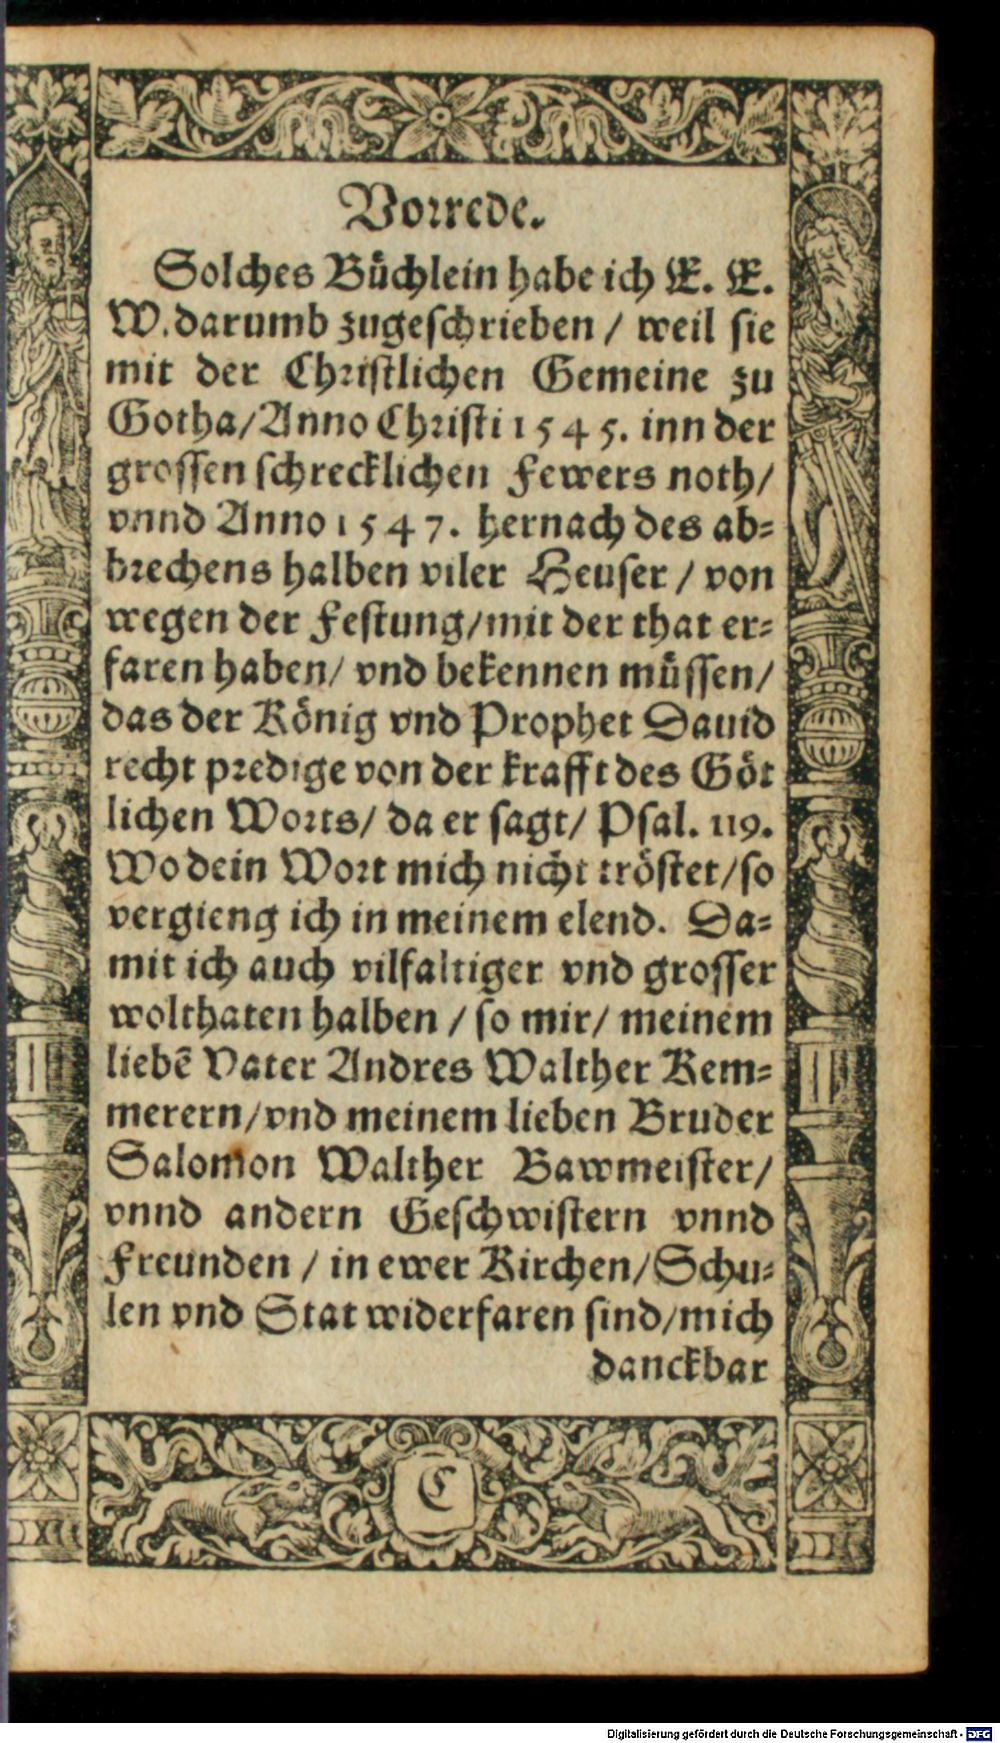 Vorrede.
Solches Büchlein habe ich E. E.
W. darumb zugeschrieben / weil sie
mit der Christlichen Gemeine zu
Gotha/ Anno Christi 1545. inn der
grossen schrecklichen Fewers noth/
vnnd Anno 1547. hernach des ab-
brechens halben viler Heuser / von
wegen der Festung/ mit der that er-
faren haben/ vnd bekennen müssen/
das der König vnd Prophet Dauid
recht predige von der krafft des Göt
lichen Worts/ da er sagt/ Psal. 119.
Wo dein Wort mich nicht tröstet/ so
vergieng ich in meinem elend. Da-
mit ich auch vilfaltiger vnd grosser
wolthaten halben / so mir/ meinem
liebē Vater Andres Walther Kem-
merern/ vnd meinem lieben Bruder
Salomon Walther Bawmeister/
vnnd andern Geschwistern vnnd
Freunden / in ewer Kirchen/ Schu-
len vnd Stat widerfaren sind/ mich
danckbar
C
Digitalisierung gefördert durch die Deutsche Forschungsgemeinschaft - DFG